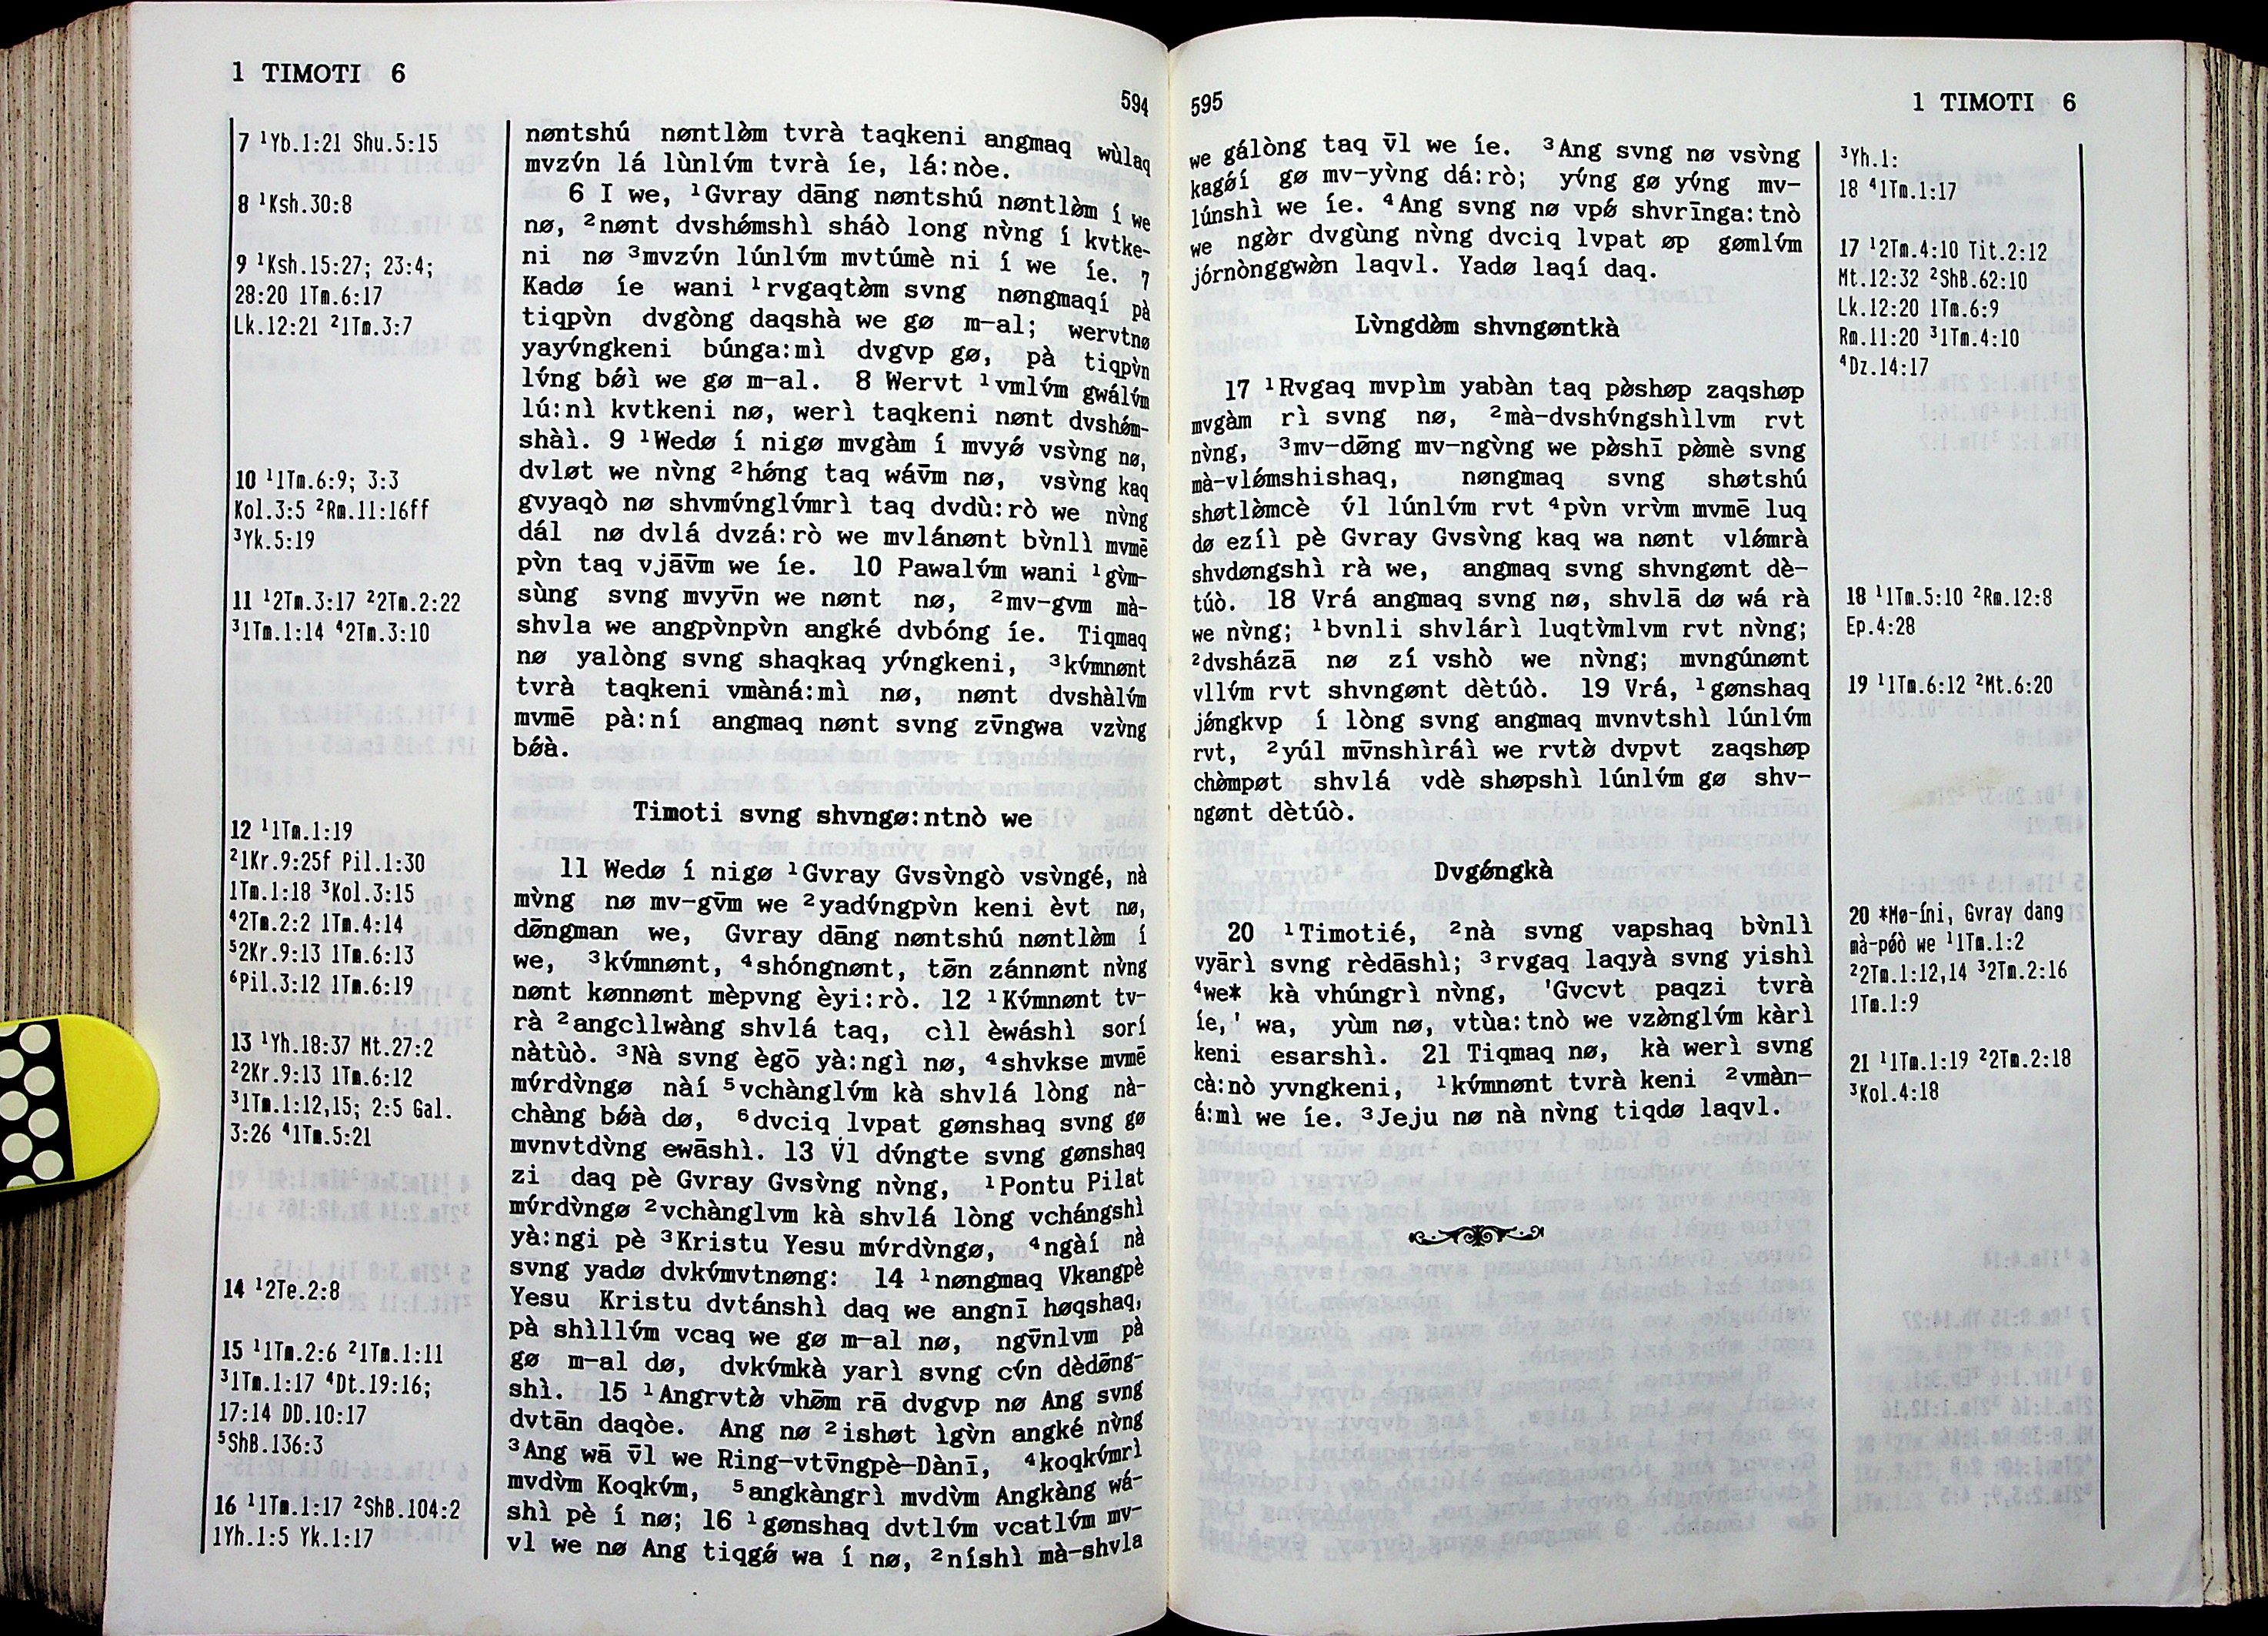 1 TIMOTI 6
594
7 ¹Yb.1:21 Shu.5:15
8 ¹Ksh.30:8
9 ¹Ksh.15:27; 23:4;
28:20 1Tm.6:17
Lk.12:21 ²1Tm.3:7
10 ¹1Tm.6:9; 3:3
Kol.3:5 ²Rm.11:16ff
³Yk.5:19
11 ¹2Tm.3:17 ²2Tm.2:22
³1Tm.1:14 ⁴2Tm.3:10
12 ¹1Tm.1:19
²1Kr.9:25f Pil.1:30
1Tm.1:18 ³Kol.3:15
⁴2Tm.2:2 1Tm.4:14
⁵2Kr.9:13 1Tm.6:13
⁶Pil.3:12 1Tm.6:19
13 ¹Yh.18:37 Mt.27:2
²2Kr.9:13 1Tm.6:12
³1Tm.1:12,15; 2:5 Gal.
3:26 ⁴1Tm.5:21
14 ¹2Te.2:8
15 ¹1Tm.2:6 ²1Tm.1:11
³1Tm.1:17 ⁴Dt.19:16;
17:14 DD.10:17
⁵ShB.136:3
16 ¹1Tm.1:17 ²ShB.104:2
1Yh.1:5 Yk.1:17
nøntshú nøntlø̀m tvrà taqkeni angmaq wùlaq
mvzv́n lá lùnlv́m tvrà íe, lá:nòe.
6 I we, ¹Gvray dāng nøntshú nøntlø̀m í we
nø, ²nønt dvshǿmshì sháò long nv̀ng í kvtke-
ni nø ³mvzv́n lúnlv́m mvtúmè ni í we íe. 7
Kadø íe wani ¹rvgaqtø̀m svng nøngmaqí pà
tiqpv̀n dvgòng daqshà we gø m-al; wervtnø
yayv́ngkeni búnga:mì dvgvp gø, pà tiqpv̀n
lv́ng bǿì we gø m-al. 8 Wervt ¹vmlv́m gwálv́m
lú:nì kvtkeni nø, werì taqkeni nønt dvshǿm-
shàì. 9 ¹Wedø í nigø mvgàm í mvyǿ vsv̀ng nø,
dvløt we nv̀ng ²hǿng taq wáv̄m nø, vsv̀ng kaq
gvyaqò nø shvmv́nglv́mrì taq dvdù:rò we nv̀ng
dál nø dvlá dvzá:rò we mvlánønt bv̀nlì mvmē
pv̀n taq vjāv̄m we íe. 10 Pawalv́m wani ¹gv̀m-
sùng svng mvyv̄n we nønt nø, ²mv-gvm mà-
shvla we angpv̀npv̀n angké dvbóng íe. Tiqmaq
nø yalòng svng shaqkaq yv́ngkeni, ³kv́mnønt
tvrà taqkeni vmàná:mì nø, nønt dvshàlv́m
mvmē pà:ní angmaq nønt svng zv̄ngwa vzv̀ng
bǿà.
Timoti svng shvngø:ntnò we
11 Wedø í nigø ¹Gvray Gvsv̀ngò vsv̀ngé, nà
mv̀ng nø mv-gv̄m we ²yadv́ngpv̀n keni èvt nø,
dø̄ngman we, Gvray dāng nøntshú nøntlø̀m í
we, ³kv́mnønt, ⁴shóngnønt, tø̄n zánnønt nv̀ng
nønt kønnønt mèpvng èyi:rò. 12 ¹Kv́mnønt tv-
rà ²angcìlwàng shvlá taq, cìl èwáshì sorí
nàtùò. ³Nà svng ègō yà:ngì nø, ⁴shvkse mvmē
mv́rdv̀ngø nàí ⁵vchànglv́m kà shvlá lòng nà-
chàng bǿà dø, ⁶dvciq lvpat gønshaq svng gø
mvnvtdv̀ng ewāshì. 13 V́l dv́ngte svng gønshaq
zi daq pè Gvray Gvsv̀ng nv̀ng, ¹Pontu Pilat
mv́rdv̀ngø ²vchànglvm kà shvlá lòng vchángshì
yà:ngi pè ³Kristu Yesu mv́rdv̀ngø, ⁴ngàí nà
svng yadø dvkv́mvtnøng: 14 ¹nøngmaq Vkangpè
Yesu Kristu dvtánshì daq we angnī høqshaq,
pà shìllv́m vcaq we gø m-al nø, ngv̄nlvm pà
gø m-al dø, dvkv́mkà yarì svng cv́n dèdø̄ng-
shì. 15 ¹Angrvtø̀ vhø̄m rā dvgvp nø Ang svng
dvtān daqòe. Ang nø ²ishøt ìgv̀n angké nv̀ng
³Ang wā v̄l we Ring-vtv̄ngpè-Dànī, ⁴koqkv́mrì
mvdv̀m Koqkv́m, ⁵angkàngrì mvdv̀m Angkàng wá-
shì pè í nø; 16 ¹gønshaq dvtlv́m vcatlv́m mv-
vl we nø Ang tiqgǿ wa í nø, ²níshì mà-shvla
595
1 TIMOTI 6
we gálòng taq v̄l we íe. ³Ang svng nø vsv̀ng
kagǿí gø mv-yv̀ng dá:rò; yv́ng gø yv́ng mv-
lúnshì we íe. ⁴Ang svng nø vpǿ shvrīnga:tnò
we ngø̀r dvgùng nv̀ng dvciq lvpat øp gømlv́m
jórnònggwø̀n laqvl. Yadø laqí daq.
Lv̀ngdø̀m shvngøntkà
17 ¹Rvgaq mvpìm yabàn taq pø̀shøp zaqshøp
mvgàm rì svng nø, ²mà-dvshv́ngshìlvm rvt
nv̀ng, ³mv-dø̄ng mv-ngv̀ng we pø̀shī pø̀mè svng
mà-vlǿmshishaq, nøngmaq svng shøtshú
shøtlø̀mcè v́l lúnlv́m rvt ⁴pv̀n vrv̀m mvmē luq
dø ezíì pè Gvray Gvsv̀ng kaq wa nønt vlǿmrà
shvdøngshì rà we, angmaq svng shvngønt dè-
túò. 18 Vrá angmaq svng nø, shvlā dø wá rà
we nv̀ng; ¹bvnli shvlárì luqtv̀mlvm rvt nv̀ng;
²dvsházā nø zí vshò we nv̀ng; mvngúnønt
vllv́m rvt shvngønt dètúò. 19 Vrá, ¹gønshaq
jǿngkvp í lòng svng angmaq mvnvtshì lúnlv́m
rvt, ²yúl mv̄nshìráì we rvtø̀ dvpvt zaqshøp
chø̀mpøt shvlá vdè shøpshì lúnlv́m gø shv-
ngønt dètúò.
Dvgǿngkà
20 ¹Timotié, ²nà svng vapshaq bv̀nlì
vyārì svng rèdāshì; ³rvgaq laqyà svng yishì
⁴we* kà vhúngrì nv̀ng, 'Gvcvt paqzi tvrà
íe,' wa, yùm nø, vtùa:tnò we vzø̀nglv́m kàrì
keni esarshì. 21 Tiqmaq nø, kà werì svng
cà:nò yvngkeni, ¹kv́mnønt tvrà keni ²vmàn-
á:mì we íe. ³Jeju nø nà nv̀ng tiqdø laqvl.
³Yh.1:
18 ⁴1Tm.1:17
17 ¹2Tm.4:10 Tit.2:12
Mt.12:32 ²ShB.62:10
Lk.12:20 1Tm.6:9
Rm.11:20 ³1Tm.4:10
⁴Dz.14:17
18 ¹1Tm.5:10 ²Rm.12:8
Ep.4:28
19 ¹1Tm.6:12 ²Mt.6:20
20 *Mø-íni, Gvray dang
mà-pǿò we ¹1Tm.1:2
²2Tm.1:12,14 ³2Tm.2:16
1Tm.1:9
21 ¹1Tm.1:19 ²2Tm.2:18
³Kol.4:18